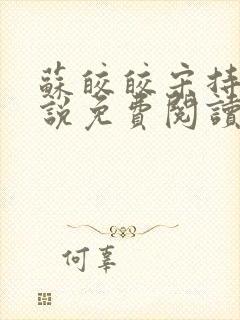 蘇皎皎宋持
說免費閱讀
何辜